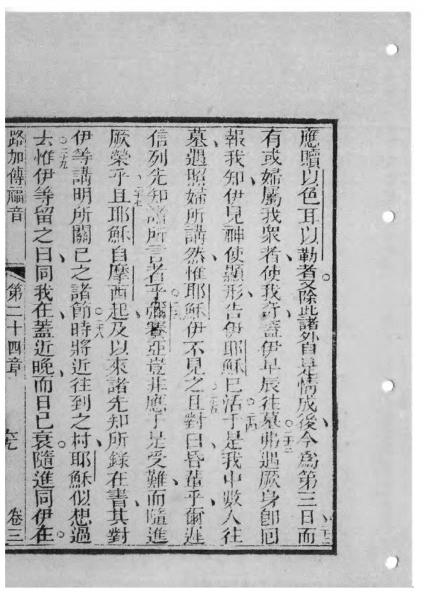 應贖以色耳以勒者又除此諸外自事情成後今為第三日而二十二
有或婦屬我眾者使我奇蓋伊早辰往墓二十三弗遇厥身即回
報我知伊見神使顯形告伊耶穌已活于是二十四我中數人往
墓遇照婦所講然惟耶穌伊不見之二十五且對曰昏輩乎爾遲
信列先知諸所言者乎二十六彌賽亞豈非應于是受難而隨進
厥榮乎二十七且耶穌自摩西起及以來諸先知所錄在書其對
伊等講明所關己之諸節時二十八將近往到之村耶穌似想過
去二十九惟伊等留之曰同我在蓋近晚而日已衰隨進同伊在
路加傳福音 第二十四章 卷三